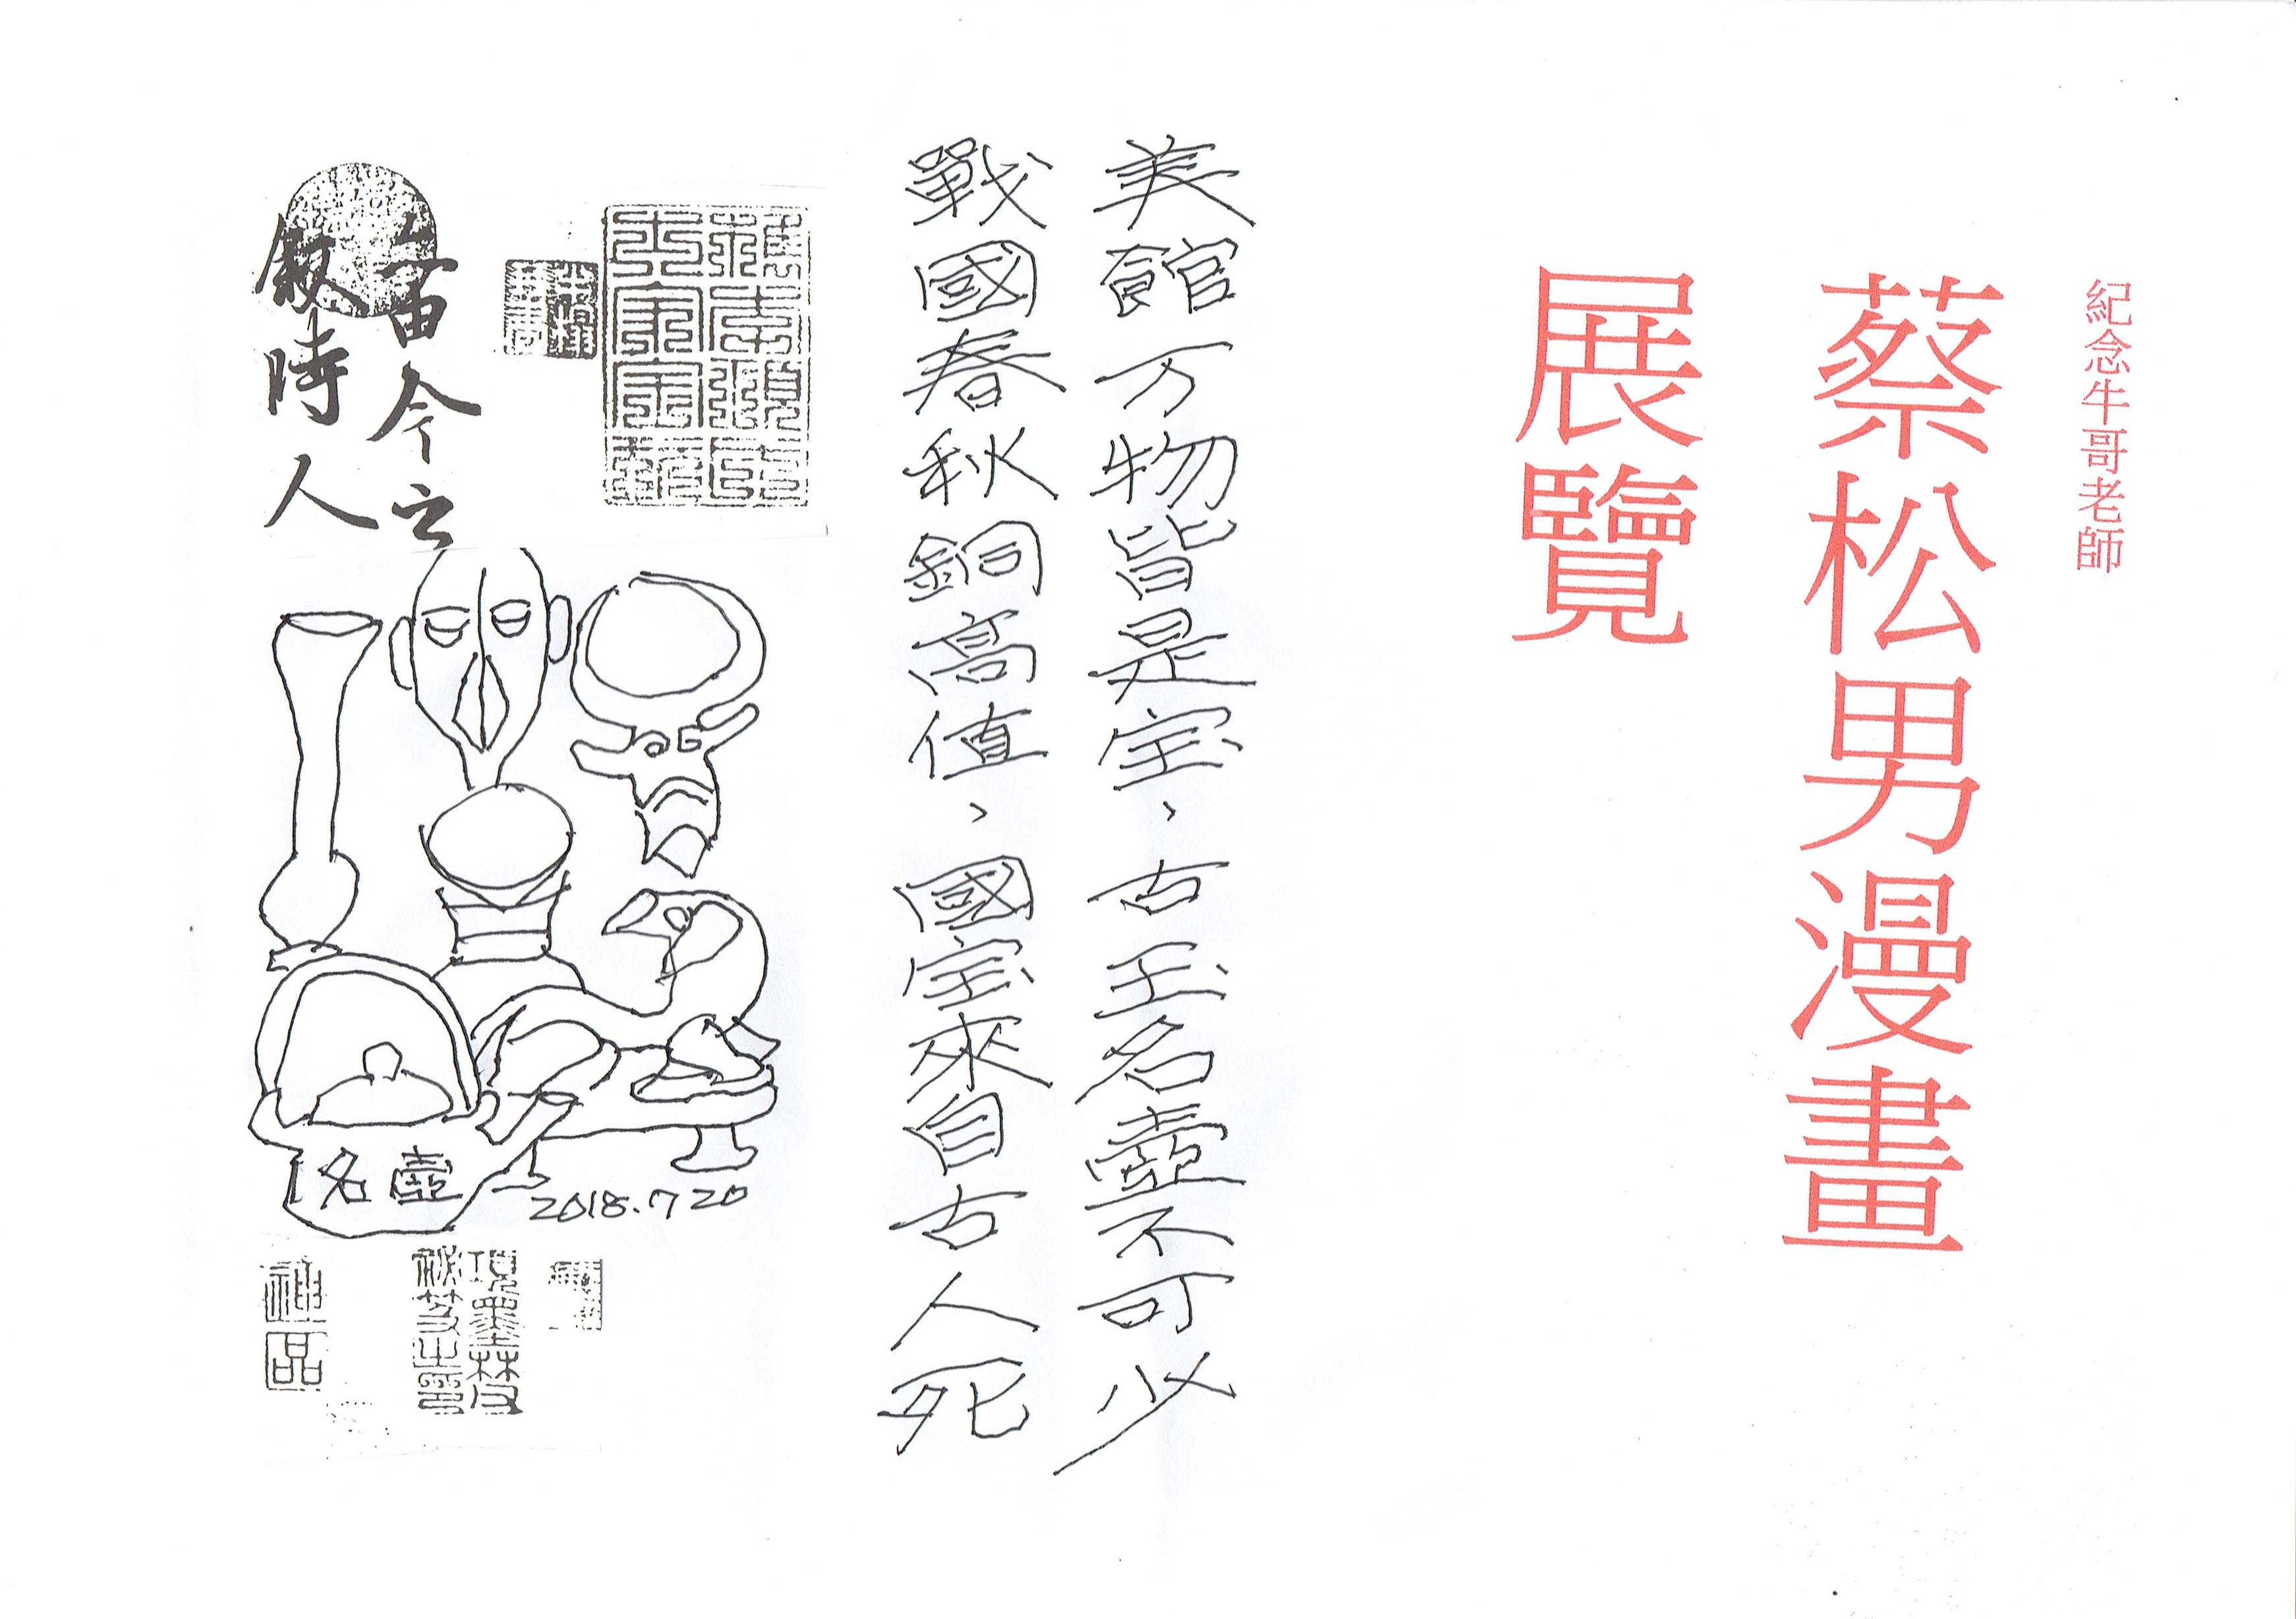 紀念牛哥老師
蔡松男漫畫
展覽
美館万物皆是宝、古玉名壺不可少
戰國春秋銅高值、國宝來自古人死
當今之
敘時人
名壺
2018.7 20
項墨林父
秘笈之印
神品